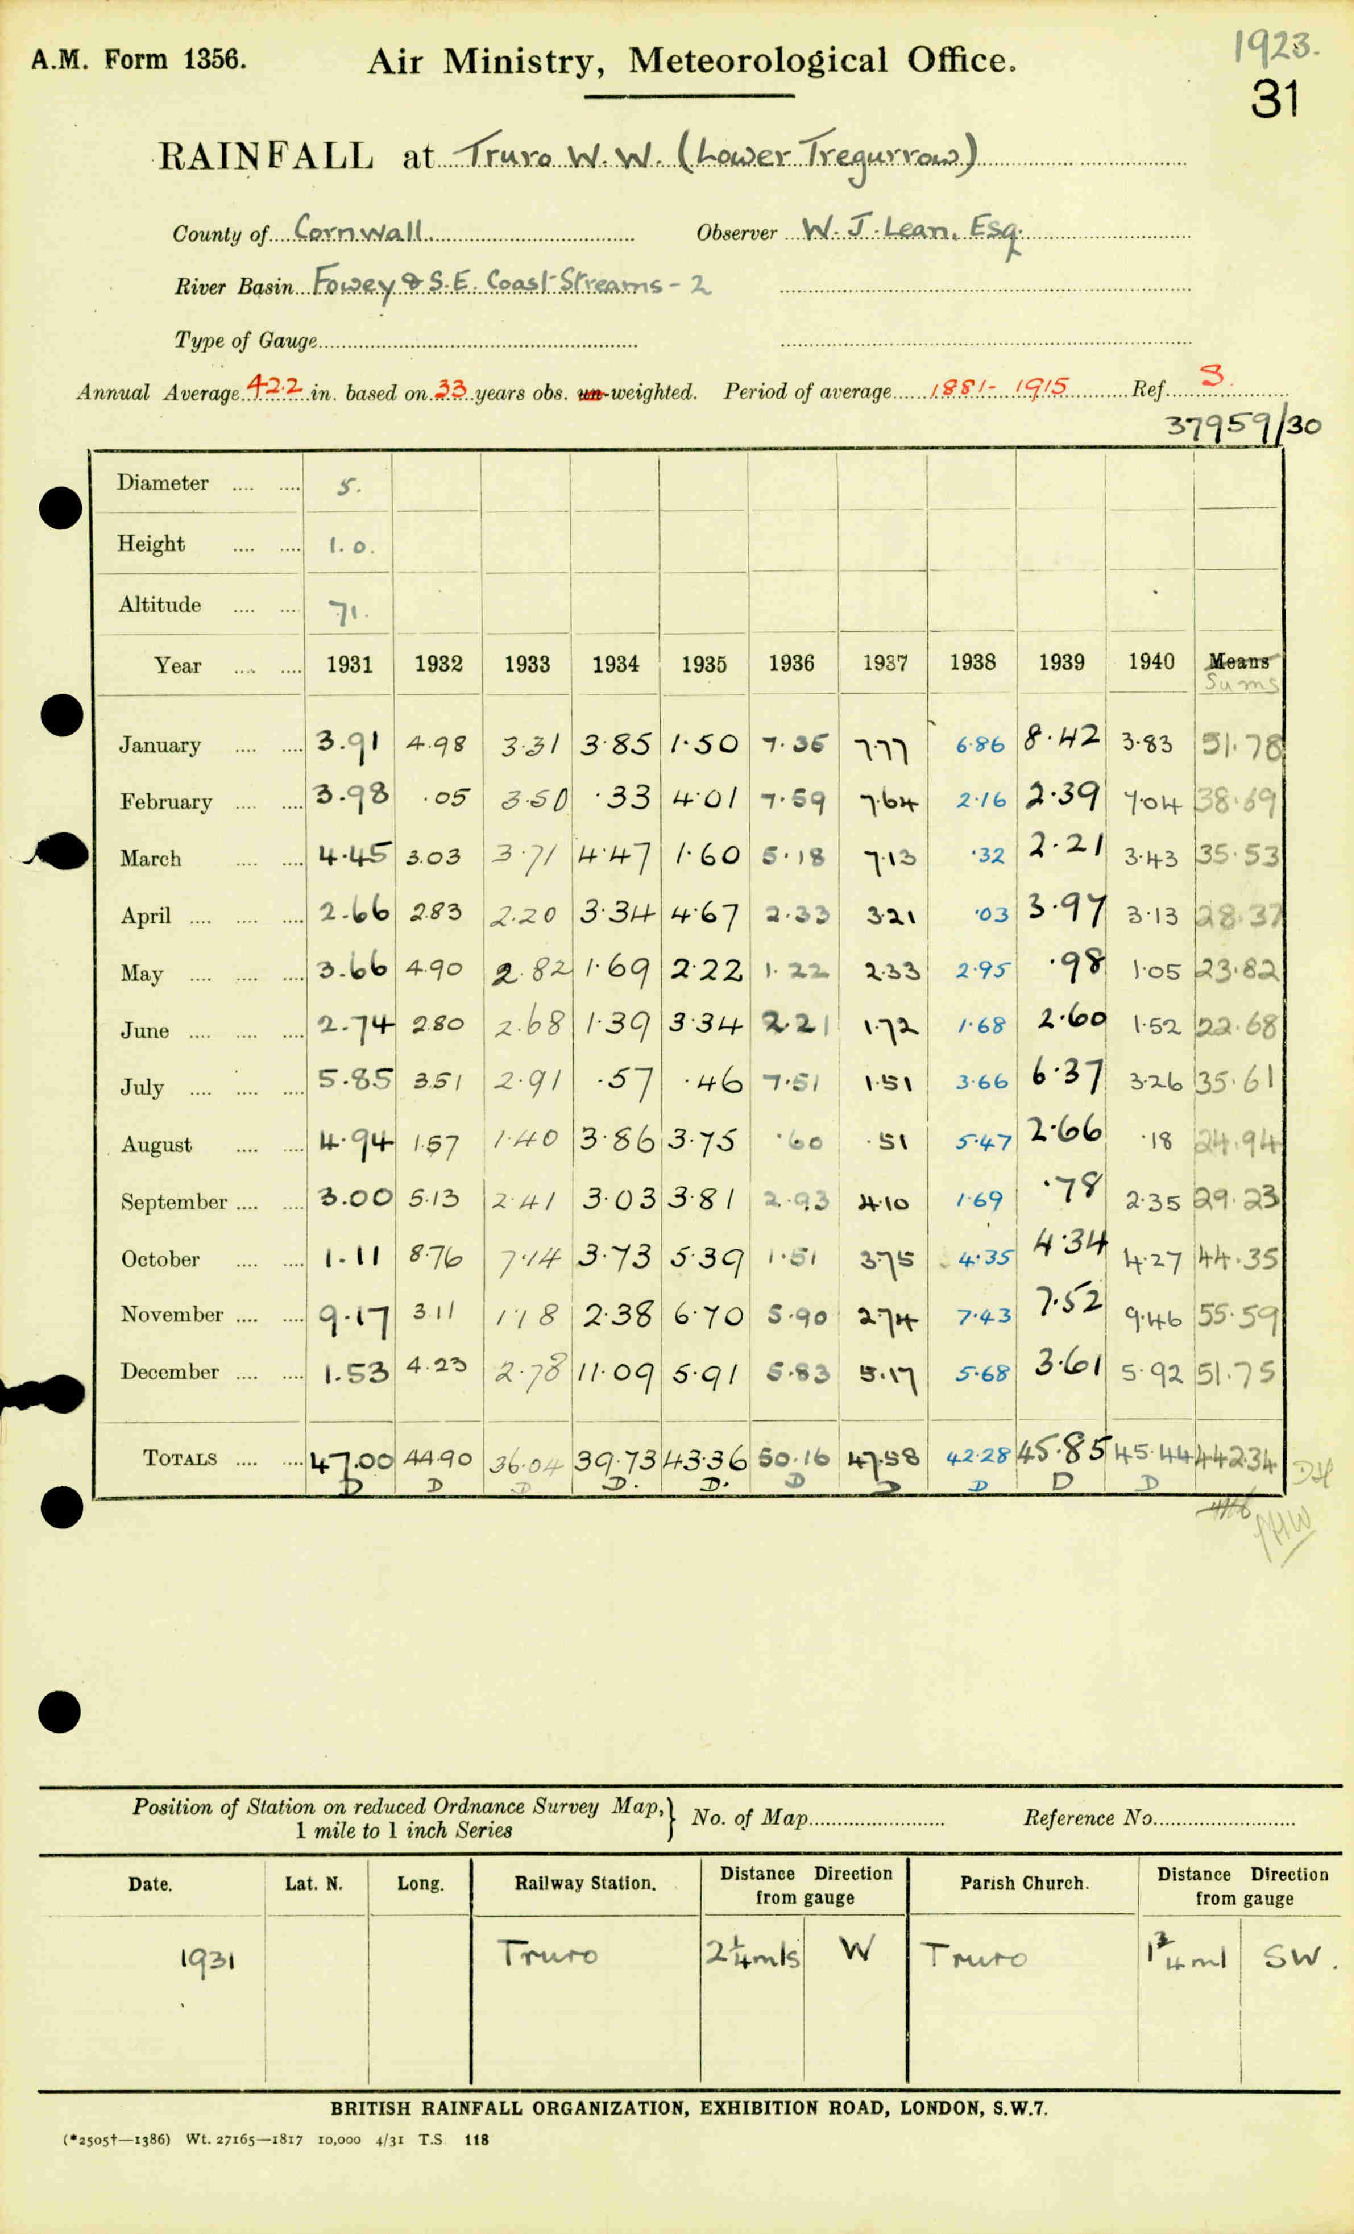 1923.
A.M. Form 1356. Air Ministry, Meteorological Office.
31
RAINFALL at Truro W.W. (Lower Tregurrow)
County of Cornwall Observer W. J. Lean, Esq.
River Basin Fowey & S.E. Coast Streams - 2
Type of Gauge
Annual Average 42.2 in. based on 33 years obs. un-weighted. Period of average 1881-1915 Ref. S.
37959/30
Diameter 5.
Height 1.0.
Altitude 71.
Year 1931 1932 1933 1934 1935 1936 1937 1938 1939 1940 Means
Sums
January 3.91 4.98 3.31 3.85 1.50 7.35 7.77 6.86 8.42 3.83 51.78
February 3.98 .05 3.50 .33 4.01 7.59 7.64 2.16 2.39 7.04 38.69
March 4.45 3.03 3.71 4.47 1.60 5.18 7.13 .32 2.21 3.43 35.53
April 2.66 2.83 2.20 3.34 4.67 2.33 3.21 .03 3.97 3.13 28.37
May 3.66 4.90 2.82 1.69 2.22 1.22 2.33 2.95 .98 1.05 23.82
June 2.74 2.80 2.68 1.39 3.34 2.21 1.72 1.68 2.60 1.52 22.68
July 5.85 3.51 2.91 .57 .46 7.51 1.51 3.66 6.37 3.26 35.61
August 4.94 1.57 1.40 3.86 3.75 .60 .51 5.47 2.66 .18 24.94
September 3.00 5.13 2.41 3.03 3.81 2.93 4.10 1.69 .78 2.35 29.23
October 1.11 8.76 7.14 3.73 5.39 1.51 3.75 4.35 4.34 4.27 44.35
November 9.17 3.11 1.18 2.38 6.70 5.90 2.74 7.43 7.52 9.46 55.59
December 1.53 4.23 2.78 11.09 5.91 5.83 5.17 5.68 3.61 5.92 51.75
Totals 47.00 44.90 36.04 39.73 43.36 50.16 47.58 42.28 45.85 45.44 442.34
D D D D. D. D D D D D
Position of Station on reduced Ordnance Survey Map, No. of Map Reference No.
1 mile to 1 inch Series
Date. Lat. N. Long. Railway Station. Distance Direction from gauge Parish Church. Distance Direction from gauge
1931 Truro 2¼ mls W Truro 1¾ ml SW.
BRITISH RAINFALL ORGANIZATION, EXHIBITION ROAD, LONDON, S.W.7.
(*2505†—1386) Wt. 27165—1817 10,000 4/31 T.S 118